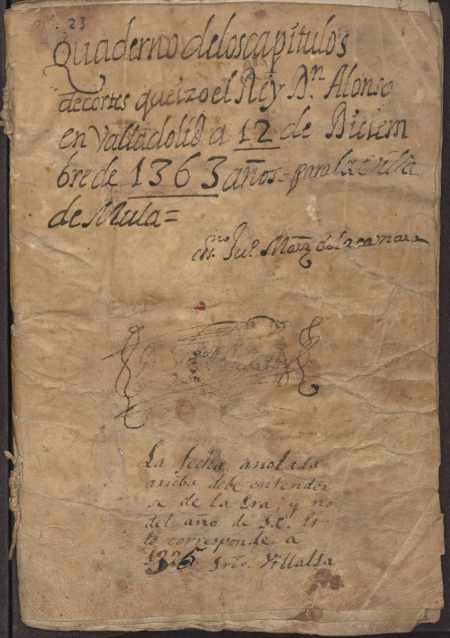 23
Quaderno delos capitulos
de cortes que izo el Rey Dn. Alonso
en Valladolid a 12 de Diciem
bre de 1363 años = para la villa
de Mula =
La fecha anotada
arriba debe entender
se de la Era, y no
del año de J.C. q.
le corresponde a
1325 Villalba